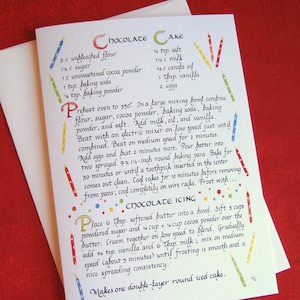 Chocolate Cake
2 c unbleached flour
1½ c sugar
1 c unsweetened cocoa powder
1 tsp. baking soda
½ tsp. baking powder
½ tsp. salt
1½ c. milk
½ c canola oil
1 tbsp. vanilla
2 eggs
Preheat oven to 350°. In a large mixing bowl combine
flour, sugar, cocoa powder, baking soda, baking
powder, and salt. Add milk, oil, and vanilla.
Beat with an electric mixer on low speed just until
combined. Beat on medium speed for 2 minutes.
Add eggs and beat 2 minutes more. Pour batter into
two sprayed 9 x 1½-inch round baking pans. Bake for
30 minutes or until a toothpick inserted in the center
comes out clean. Cool cakes for 10 minutes before removing
from pans; cool completely on wire racks. Frost with
CHOCOLATE ICING
Place 6 tbsp. softened butter into a bowl. Sift 3 cups
powdered sugar and ½ cup + ¼ cup cocoa powder over the
butter. Cream together on low speed to blend. Gradually
add ½ tsp. vanilla and 6 tbsp. milk; mix on medium
speed (about 5 minutes) until frosting is smooth and a
nice spreading consistency.
Makes one double-layer round iced cake.